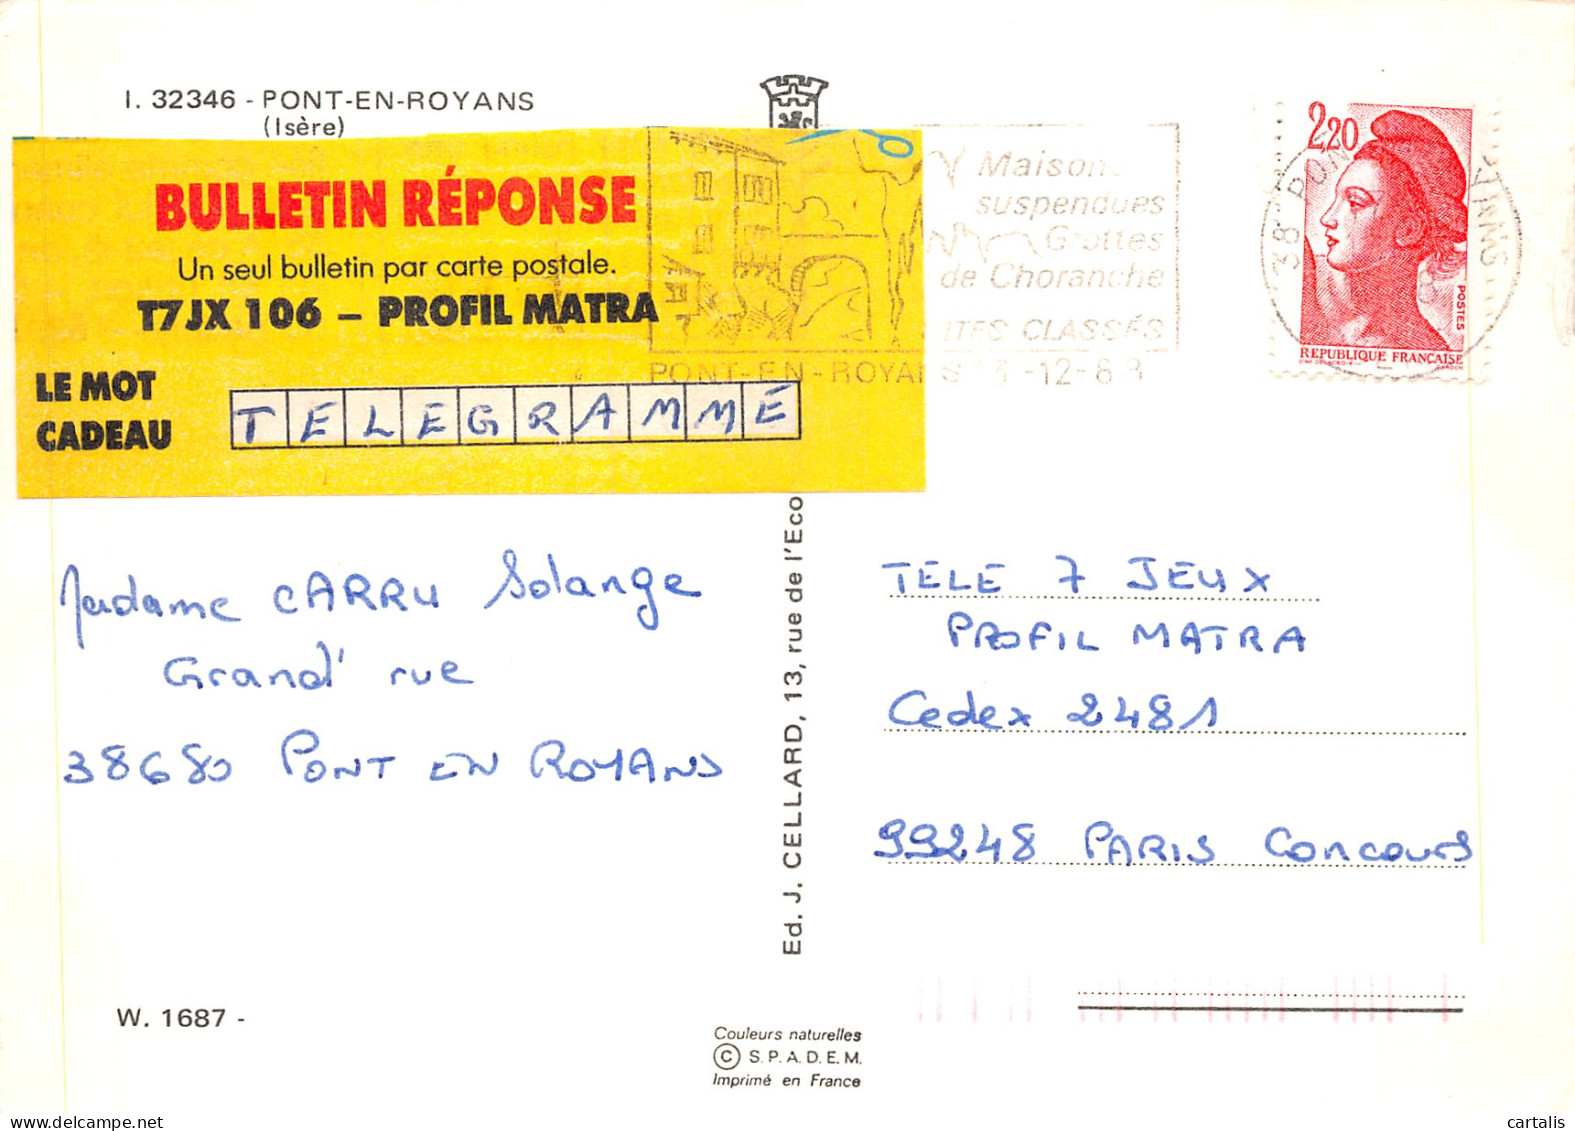 I. 32346 - PONT-EN-ROYANS
(Isère)
BULLETIN RÉPONSE
Un seul bulletin par carte postale.
T7JX 106 – PROFIL MATRA
LE MOT
CADEAU
TELEGRAMME
Maisons
suspendues
Grottes
de Choranche
SITES CLASSÉS
PONT-EN-ROYANS
-12-88
2,20
POSTES
REPUBLIQUE FRANÇAISE
38 PONT
YANS
Madame CARRU Solange
Grand' rue
38680 PONT EN ROYANS
Ed. J. CELLARD, 13, rue de l'Eco
TELE 7 JEUX
PROFIL MATRA
Cedex 2481
99248 PARIS Concours
W. 1687 -
Couleurs naturelles
© S.P.A.D.E.M.
Imprimé en France
cartalis